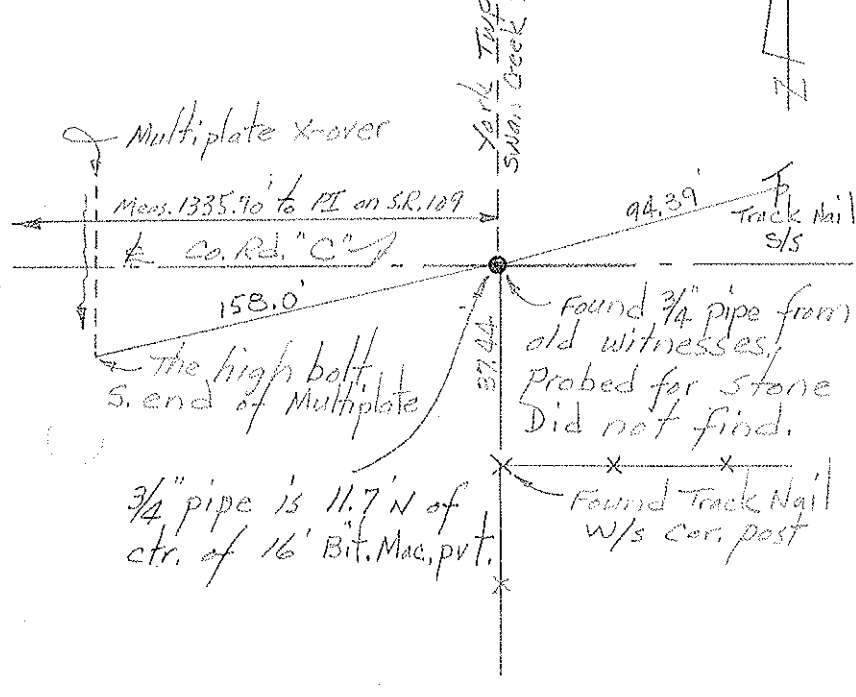 York Twp
Swan Creek
N
Multiplate X-over
Meas. 1335.90' to PI on S.R. 109
℄ Co. Rd. "C"
94.39'
Track Nail
S/S
158.0'
The high bolt,
S. end of Multiplate
37.44
Found 3/4" pipe from
old witnesses,
Probed for stone
Did not find.
3/4" pipe is 11.7' N of
ctr. of 16' Bit. Mac. pvt.
Found Track Nail
W/s Cor. post